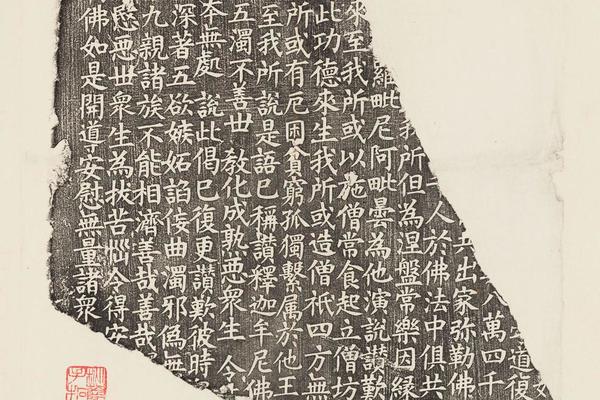 道復
八萬四千
出家弥勒佛
人於佛法中俱共
我所但為涅盤常樂因緣
羅毗尼阿毗曇為他演說讚歎
來至我所或以施僧常食起立僧坊
此功德來生我所或造僧祇四方無
所或有厄困貧窮孤獨繫属於他王
至我所說是語已稱讚釋迦牟尼佛
五濁不善世 教化成孰惡衆生 令
本無處 說此偈已復更讚歎彼時
深著五欲嫉妬諂佞曲濁邪偽無
九親諸族不能相濟善哉善哉
愍惡世衆生為拔苦惱令得安
佛如是開導安慰無量諸衆